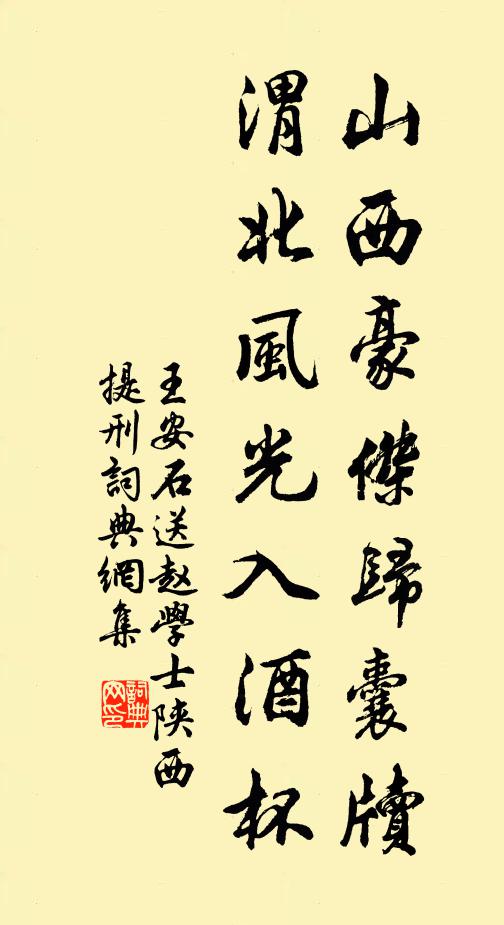 山西豪傑歸囊牘
渭北風光入酒杯
王安石送赵學士陝西
提刑詞典網集
詞典网印